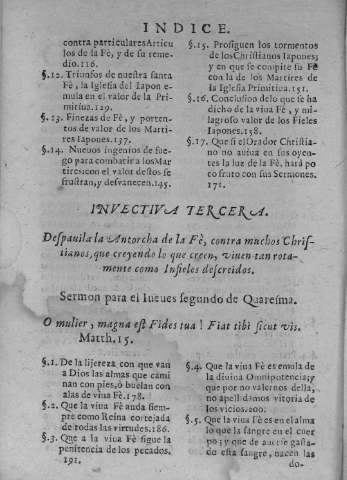 INDICE.
contra particulares Articu
los de la Fè, y de su reme
dio.116.
§.12. Triunfos de nuestra santa
Fè, la Iglesia del Iapon e
mula en el valor de la Pri
mitiua.129.
§.13. Finezas de Fè, y porten-
tos de valor de los Marti-
res Iapones.137.
§.14. Nueuos ingenios de fue-
go para combatir a los Mar
tires:con el valor destos se
frustran,y desvanecen.145.
§.15. Prosiguen los tormentos
de los Christianos Iapones;
y en que se compite su Fè
con la de los Martires de
la Iglesia Primitiua.151.
§.16. Conclusion de lo que se ha
dicho de la viua Fè, y mi-
lagroso valor de los Fieles
Iapones.158.
§.17. Que si el Orador Christia-
no no auiua en sus oyen-
tes la luz de la Fè, hará po
co fruto con sus Sermones.
171.
INVECTIVA TERCERA.
Despauila la Antorcha de la Fè, contra muchos Chris-
tianos, que creyendo lo que creen, viuen tan rota-
mente como Infieles descreidos.
Sermon para el Iueues segundo de Quaresma.
O mulier, magna est Fides tua! Fiat tibi sicut vis.
Matth.15.
§.1. De la lijereza con que van
a Dios las almas que cami
nan con pies,ò buelan con
alas de viua Fè.178.
§.2. Que la viua Fè anda siem-
pre como Reina cortejada
de todas las virtudes.186.
§.3. Que a la viua Fè sigue la
penitencia de los pecados.
191.
§.4. Que la viua Fè es emula de
la diuina Omnipotencia;y
que por no valernos della,
no apellidamos vitoria de
los vicios.200.
§.5. Que la viua Fè es en el alma
lo que la sangre en el cuer
po; y que de auerse gasta-
do esta sangre, nacen las
do-